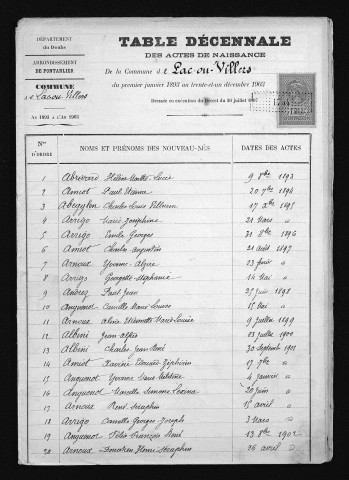 DÉPARTEMENT
du Doubs
ARRONDISSEMENT
DE PONTARLIER
COMMUNE
An 1893 à l'An 1903
TABLE DÉCENNALE
DES ACTES DE NAISSANCE
De la Commune de Lac-ou-Villers
du premier janvier 1893 au trente-et-un décembre 1902
Dressée en exécution du Décret du 20 juillet 1807
Nos D'ORDRE NOMS ET PRÉNOMS DES NOUVEAU-NÉS DATES DES ACTES
1 9 8bre 1893
2 Amiot Paul 20 7bre 1894
3 Charles Louis 17 Xbre 1895
4 Arrigo Marie Joséphine 21 Mars "
5 Arrigo Emile Georges 31 8bre 1896
6 Amiot Charles Augustin 21 août 1897
7 Arnoux Yvonne 23 "
8 Arrigo Georgette Stéphanie 14 Mai "
9 Paul Jean 27 juin 1898
10 Anguenot Camille Marie Louise 15 Mai "
11 Arnoux Alice Marie Louise 9 juillet 1899
12 Albini Jean 23 juillet 1900
13 Albini Charles Jean René 30 Septembre 1901
14 Amiot Xavier Edouard Zéphirin 17 7bre "
15 Anguenot Yvonne Marie 4 janvier "
16 Anguenot Marcelle Simone 20 juin "
17 Arnoux René Séraphin 15 avril "
18 Arrigo Camille Georges Joseph 3 Mars "
19 Anguenot Félix François René 13 8bre 1902
20 Arnoux Henri Séraphin 26 avril "